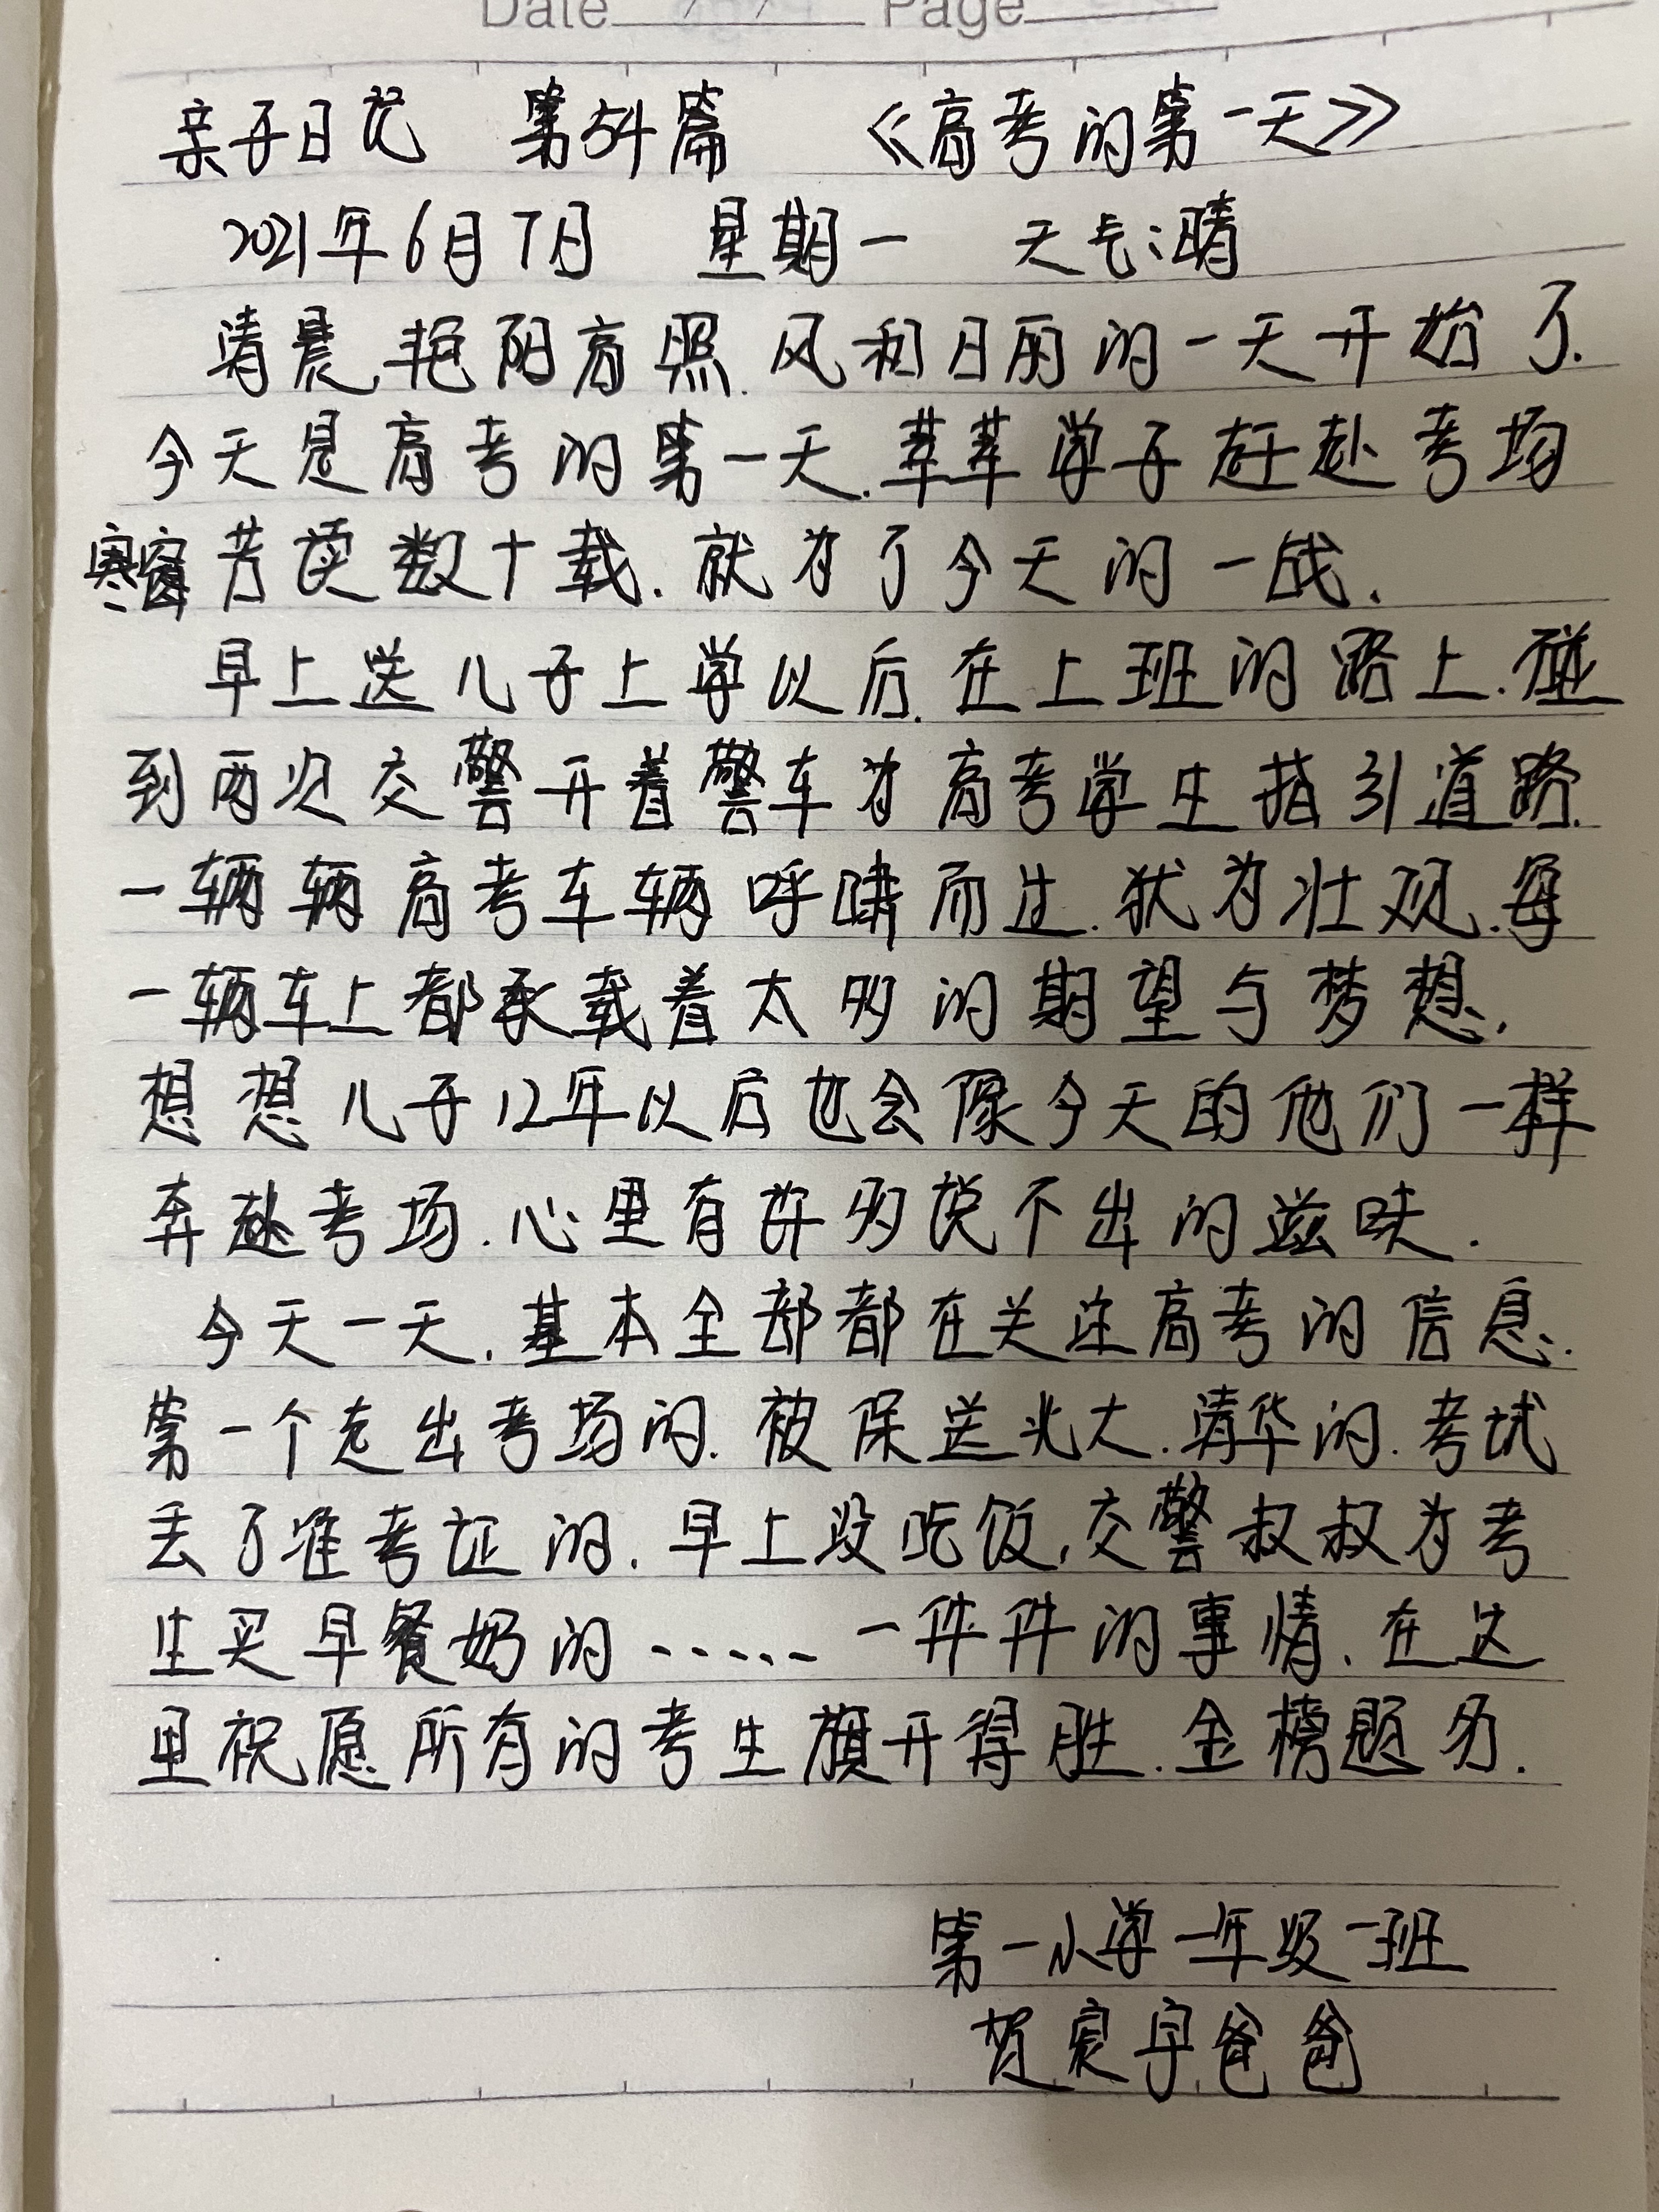 Date Page
亲子日记 第54篇 《高考的第一天》
2021年6月7日 星期一 天气:晴
清晨艳阳高照.风和日丽的一天开始了.
今天是高考的第一天.莘莘学子赶赴考场
寒窗苦读数十载.就为了今天的一战.
早上送儿子上学以后.在上班的路上.碰
到两次交警开着警车为高考学生指引道路.
一辆辆高考车辆呼啸而过.状为壮观.每
一辆车上都承载着太多的期望与梦想.
想想儿子12年以后也会像今天的他们一样
奔赴考场.心里有许多说不出的滋味.
今天一天.基本全部都在关注高考的信息.
第一个走出考场的.被保送北大.清华的.考试
丢了准考证的.早上没吃饭,交警叔叔为考
生买早餐奶的......一件件的事情.在这
里祝愿所有的考生旗开得胜.金榜题名.
第一小学一年级一班
贺宸宇爸爸